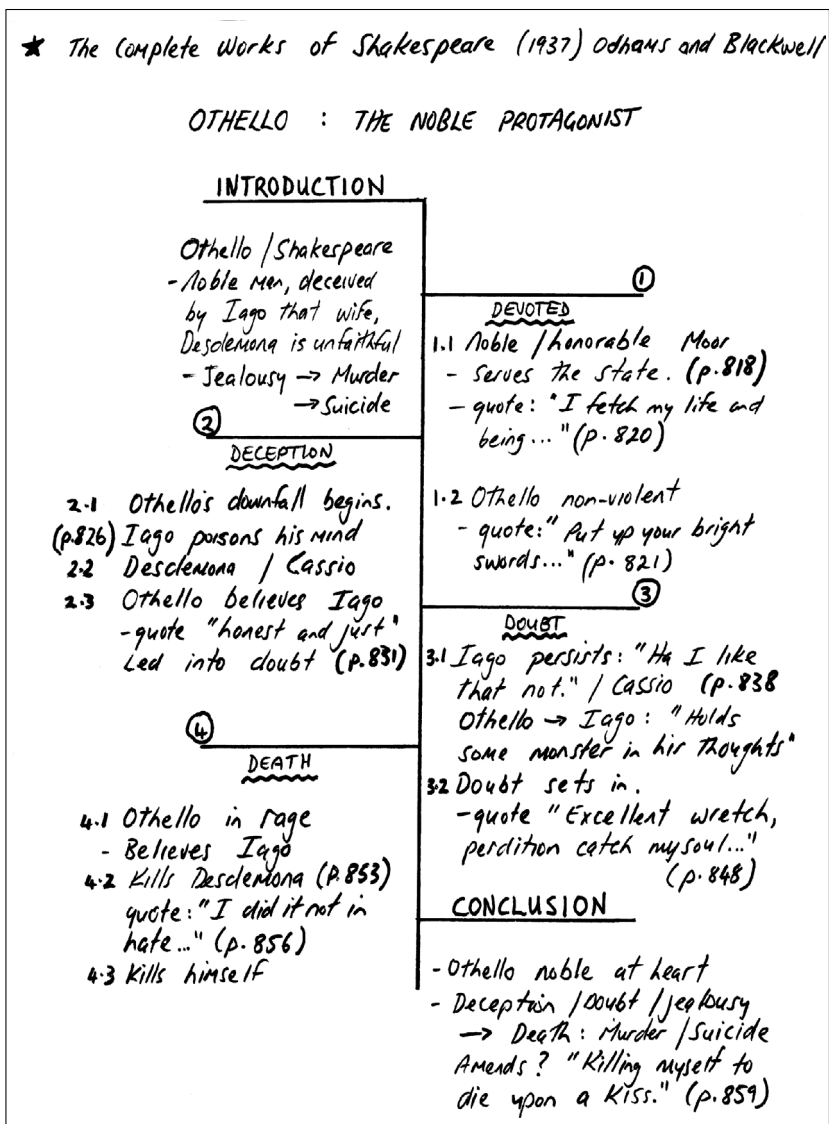 ★ The Complete Works of Shakespeare (1937) Odhams and Blackwell
OTHELLO : THE NOBLE PROTAGONIST
INTRODUCTION
Othello / Shakespeare
- Noble Man, deceived
by Iago that wife,
Desdemona is unfaithful
- Jealousy → Murder
→ Suicide
①
DEVOTED
1.1 Noble / honorable Moor
- Serves the state. (p.818)
- quote: "I fetch my life and
being..." (p. 820)
1.2 Othello non-violent
- quote: "Put up your bright
swords..." (p. 821)
②
DECEPTION
2.1 Othello's downfall begins.
(p.826) Iago poisons his mind
2.2 Desdemona / Cassio
2.3 Othello believes Iago
- quote "honest and just"
Led into doubt (p.831)
③
DOUBT
3.1 Iago persists: "Ha I like
that not." / Cassio (p.838
Othello → Iago : "Holds
some monster in his thoughts"
3.2 Doubt sets in.
- quote "Excellent wretch,
perdition catch my soul..."
(p.848)
④
DEATH
4.1 Othello in rage
- Believes Iago
4.2 Kills Desdemona (P.853)
quote: "I did it not in
hate..." (p.856)
4.3 Kills himself
CONCLUSION
- Othello noble at heart
- Deception / Doubt / jealousy
→ Death : Murder / Suicide
Amends ? "Killing myself to
die upon a Kiss." (p.859)